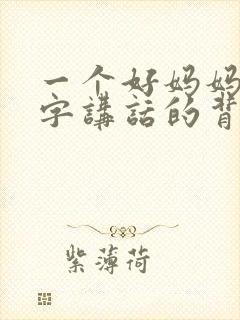 一个好妈妈
字講話的背
紫薄荷